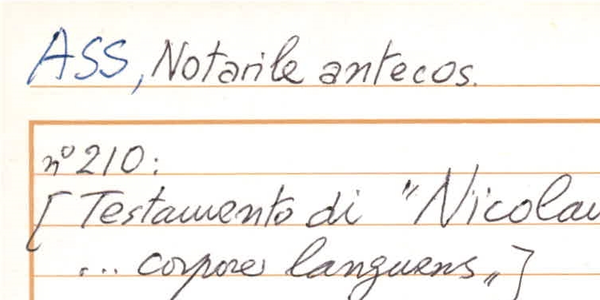 ASS, Notarile antecos.
n° 210:
[Testamento di "Nicolau
... corpore languens„]